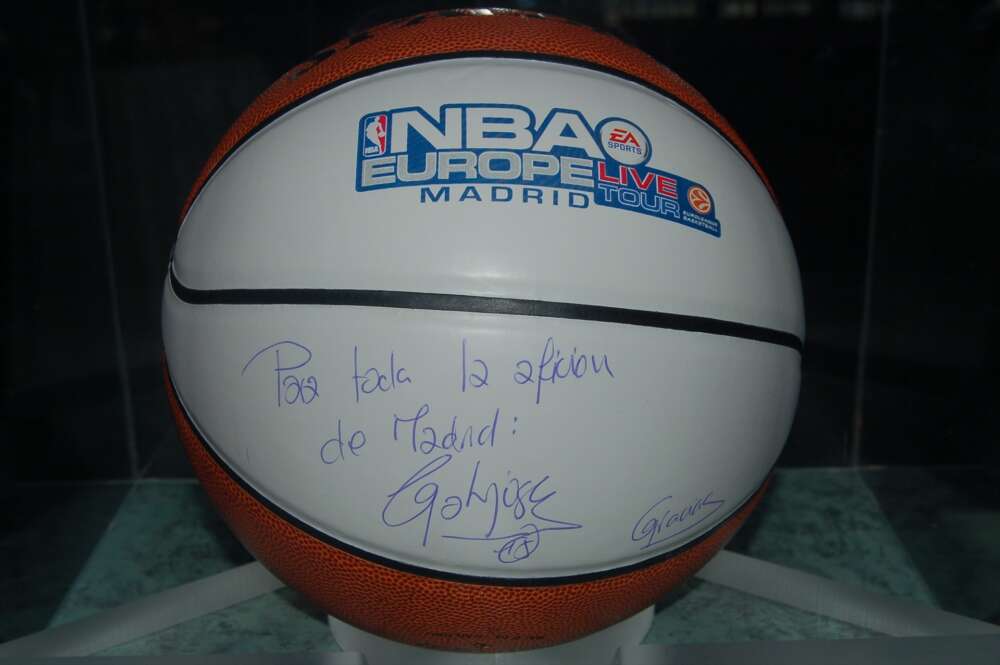 NBA
NBA
EA
SPORTS
EUROPE LIVE
MADRID
TOUR
EUROLEAGUE
BASKETBALL
Para toda la aficion
de Madrid:
Garbajosa
Gracias